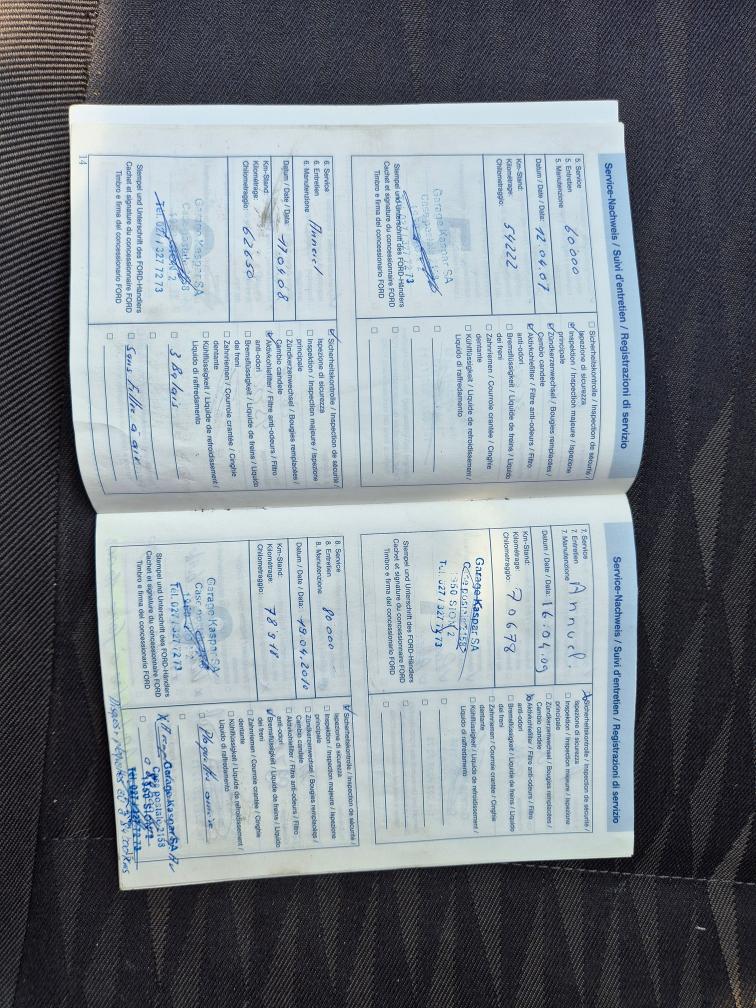 Service-Nachweis / Suivi d'entretien / Registrazioni di servizio
5. Service
5. Entretien
5. Manutenzione
60 000
Datum / Date / Data: 12.04.07
Km-Stand:
Kilométrage:
Chilometraggio:
54222
Garage Kaspar SA
027 / 327 72 73
Stempel und Unterschrift des FORD-Händlers
Cachet et signature du concessionnaire FORD
Timbro e firma del concessionario FORD
Sicherheitskontrolle / Inspection de sécurité /
Ispezione di sicurezza
Inspektion / Inspection majeure / Ispezione
principale
Zündkerzenwechsel / Bougies remplacées /
Cambio candele
Aktivkohlefilter / Filtre anti-odeurs / Filtro
anti-odori
Bremsflüssigkeit / Liquide de freins / Liquido
dei freni
Zahnriemen / Courroie crantée / Cinghie
dentante
Kühlflüssigkeit / Liquide de refroidissement /
Liquido di raffredamento
6. Service
6. Entretien
6. Manutenzione
Annuel
Datum / Date / Data: 17.04.08
Km-Stand:
Kilométrage:
Chilometraggio:
62650
Garage Kaspar SA
Tél. 027 / 327 72 73
Stempel und Unterschrift des FORD-Händlers
Cachet et signature du concessionnaire FORD
Timbro e firma del concessionario FORD
Sicherheitskontrolle / Inspection de sécurité /
Ispezione di sicurezza
Inspektion / Inspection majeure / Ispezione
principale
Zündkerzenwechsel / Bougies remplacées /
Cambio candele
Aktivkohlefilter / Filtre anti-odeurs / Filtro
anti-odori
Bremsflüssigkeit / Liquide de freins / Liquido
dei freni
Zahnriemen / Courroie crantée / Cinghie
dentante
Kühlflüssigkeit / Liquide de refroidissement /
Liquido di raffredamento
3 Balais
Sans filtre a air
14
Service-Nachweis / Suivi d'entretien / Registrazioni di servizio
7. Service
7. Entretien
7. Manutenzione
Annuel.
Datum / Date / Data: 16.04.09
Km-Stand:
Kilométrage:
Chilometraggio:
70678
Garage Kaspar SA
Case postale 2158
1950 SION 2
Tél. 027 / 327 72 73
Stempel und Unterschrift des FORD-Händlers
Cachet et signature du concessionnaire FORD
Timbro e firma del concessionario FORD
Sicherheitskontrolle / Inspection de sécurité /
Ispezione di sicurezza
Inspektion / Inspection majeure / Ispezione
principale
Zündkerzenwechsel / Bougies remplacées /
Cambio candele
Aktivkohlefilter / Filtre anti-odeurs / Filtro
anti-odori
Bremsflüssigkeit / Liquide de freins / Liquido
dei freni
Zahnriemen / Courroie crantée / Cinghie
dentante
Kühlflüssigkeit / Liquide de refroidissement /
Liquido di raffredamento
8. Service
8. Entretien
8. Manutenzione
80 000
Datum / Date / Data: 19.04.2010
Km-Stand:
Kilométrage:
Chilometraggio:
78'918
Garage Kaspar SA
Tél. 027 / 327 72 73
Stempel und Unterschrift des FORD-Händlers
Cachet et signature du concessionnaire FORD
Timbro e firma del concessionario FORD
Sicherheitskontrolle / Inspection de sécurité /
Ispezione di sicurezza
Inspektion / Inspection majeure / Ispezione
principale
Zündkerzenwechsel / Bougies remplacées /
Cambio candele
Aktivkohlefilter / Filtre anti-odeurs / Filtro
anti-odori
Bremsflüssigkeit / Liquide de freins / Liquido
dei freni
Zahnriemen / Courroie crantée / Cinghie
dentante
Kühlflüssigkeit / Liquide de refroidissement /
Liquido di raffredamento
Garage Kaspar SA
Case postale 2158
1950 SION 2
Tél. 027 / 327 72 73